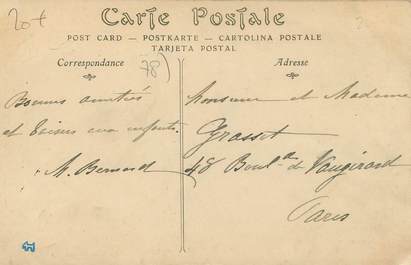 20 €
Carte Postale
POST CARD — POSTKARTE — CARTOLINA POSTALE
TARJETA POSTAL
Correspondance
78)
Adresse
Bonnes amitiés
et baisers aux enfants.
M. Bernard
Monsieur et Madame
Grosset
48 Boul. de Vaugirard
Paris